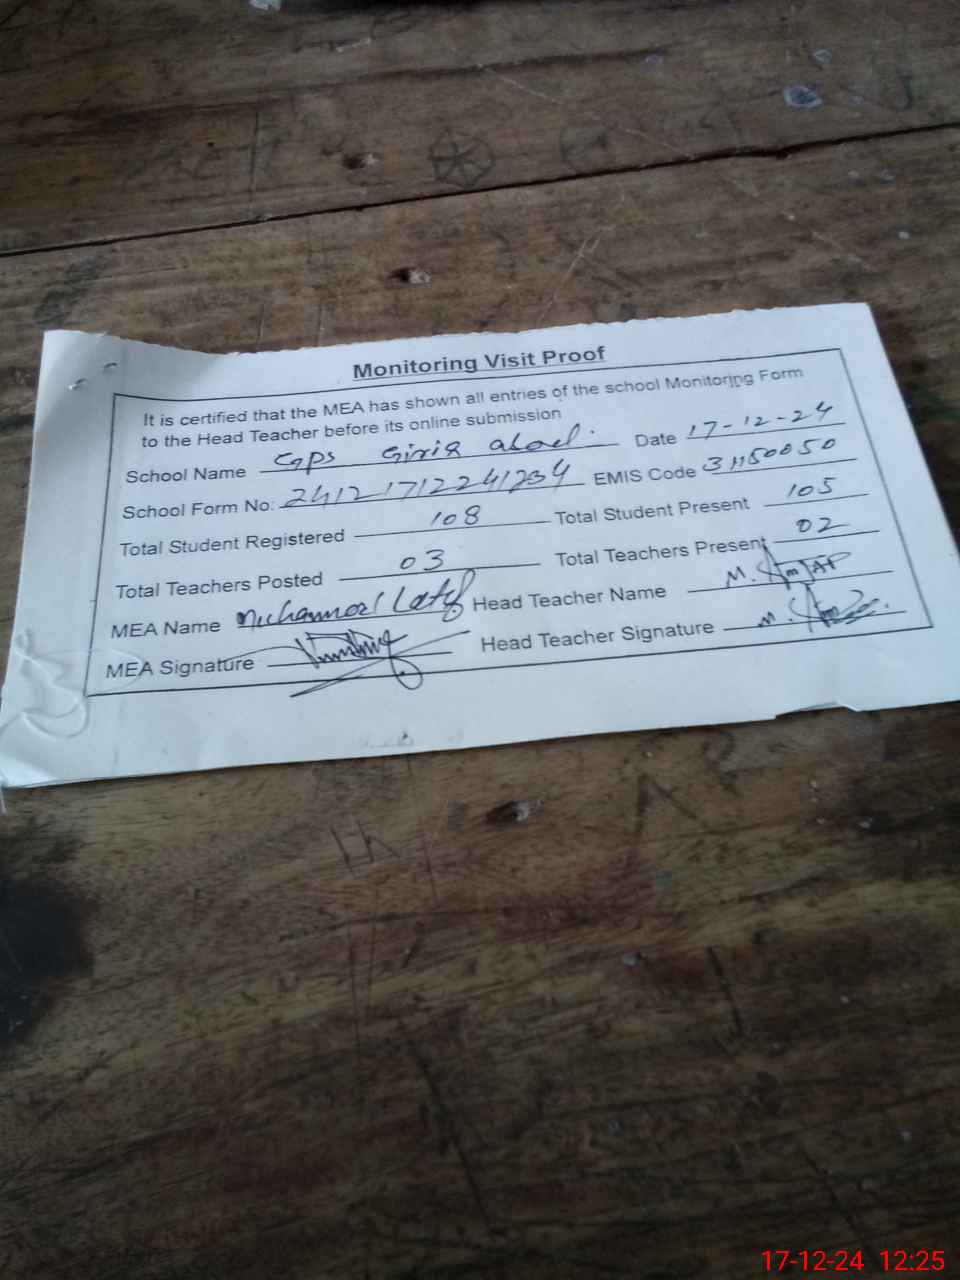 Monitoring Visit Proof
It is certified that the MEA has shown all entries of the school Monitoring Form
to the Head Teacher before its online submission
School Name GPS Date 17-12-24
School Form No: 241217122241234 EMIS Code 31150050
Total Student Registered 108 Total Student Present 105
Total Teachers Posted 03 Total Teachers Present 02
MEA Name Muhammad Latif Head Teacher Name M.
MEA Signature Head Teacher Signature M.
17-12-24 12:25